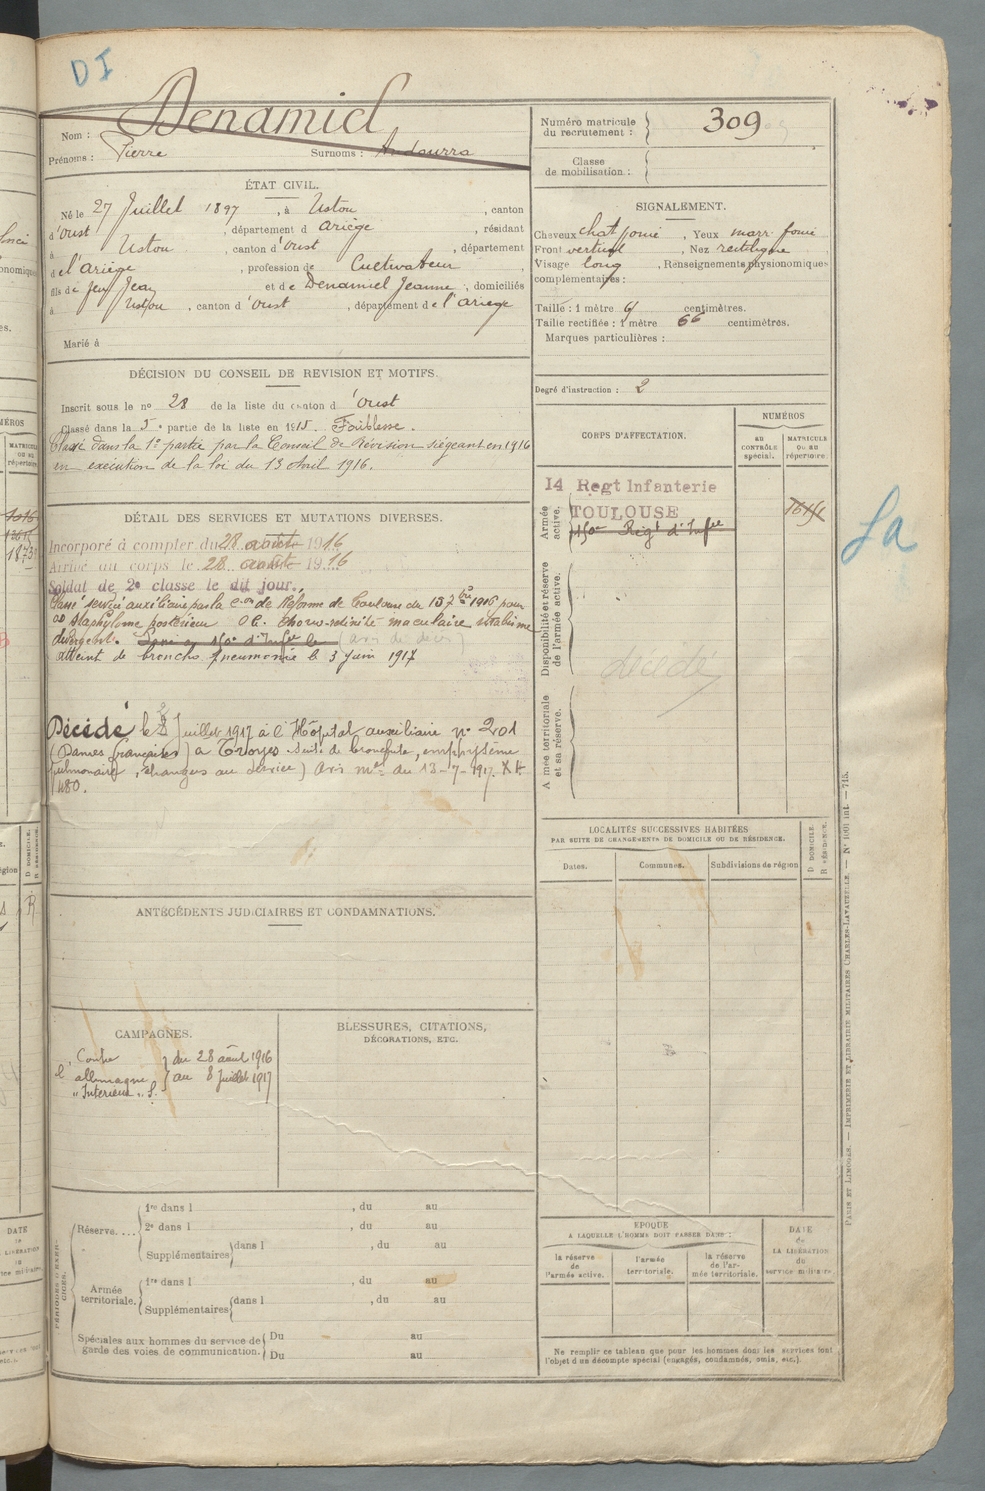 DI
Nom : Denamiel
Prénoms : Pierre Surnoms : Andourra
Numéro matricule du recrutement : 309
Classe de mobilisation :
ÉTAT CIVIL.
Né le 27 Juillet 1897, à Ustou, canton
d'Oust, département d Ariège, résidant
à Ustou, canton d'Oust, département
de l'Ariège, profession de Cultivateur,
fils de feu Jean et de Denamiel Jeanne, domiciliés
à Ustou, canton d'Oust, département de l'Ariège
Marié à
SIGNALEMENT.
Cheveux chat foncé, Yeux marr. foncé
Front vertical, Nez rectiligne
Visage long, Renseignements physionomiques
complémentaires :
Taille : 1 mètre centimètres.
Taille rectifiée : 1 mètre 66 centimètres.
Marques particulières :
Degré d'instruction : 2
DÉCISION DU CONSEIL DE REVISION ET MOTIFS.
Inscrit sous le no 28 de la liste du canton d'Oust
Classé dans la 5e partie de la liste en 1915. Faiblesse.
Classé dans la 1e partie par le Conseil de Révision siégeant en 1916
en exécution de la loi du 13 Avril 1916.
CORPS D'AFFECTATION.
NUMÉROS
au CONTRÔLE spécial.
MATRICULE ou au répertoire.
Armée active.
14 Regt Infanterie
TOULOUSE
150e Regt d'Infie
Disponibilité et réserve de l'armée active.
décédé
Armée territoriale et sa réserve.
La
DÉTAIL DES SERVICES ET MUTATIONS DIVERSES.
Incorporé à compter du 28 août 1916
Arrivé au corps le 28 août 1916
Soldat de 2e classe le dit jour.
Classé service auxiliaire par la Con de Réforme de Toulouse du 13 7bre 1916 pour
OD Staphylome postérieur OG. maculaire strabisme
divergent. (avis de décès)
Atteint de broncho pneumonie le 3 Juin 1917
Décédé le 8 Juillet 1917 à l'Hôpital auxiliaire no 201
(Dames françaises) à Troyes suite de bronchite, emphysème
pulmonaire, étrangers au service) Avis mel du 13-7-1917.
480.
LOCALITÉS SUCCESSIVES HABITÉES
PAR SUITE DE CHANGEMENTS DE DOMICILE OU DE RÉSIDENCE.
Dates. Communes. Subdivisions de région D DOMICILE. R RÉSIDENCE.
ANTÉCÉDENTS JUDICIAIRES ET CONDAMNATIONS.
CAMPAGNES.
Contre l'allemagne "Intérieur" S. du 28 août 1916
au 8 Juillet 1917
BLESSURES, CITATIONS,
DÉCORATIONS, ETC.
PÉRIODES D'EXERCICES.
Réserve....
1re dans l , du au
2e dans l , du au
Supplémentaires dans l , du au
Armée territoriale.
1re dans l , du au
Supplémentaires dans l , du au
Spéciales aux hommes du service de garde des voies de communication.
Du au
Du au
EPOQUE
A LAQUELLE L'HOMME DOIT PASSER DANS :
la réserve de l'armée active.
l'armée territoriale.
la réserve de l'armée territoriale.
DATE de LA LIBÉRATION du service militaire.
Ne remplir ce tableau que pour les hommes dont les services font
l'objet d'un décompte spécial (engagés, condamnés, omis, etc.).
PARIS ET LIMOGES. — IMPRIMERIE ET LIBRAIRIE MILITAIRES CHARLES-LAVAUZELLE. — No 1001 int. — 715.